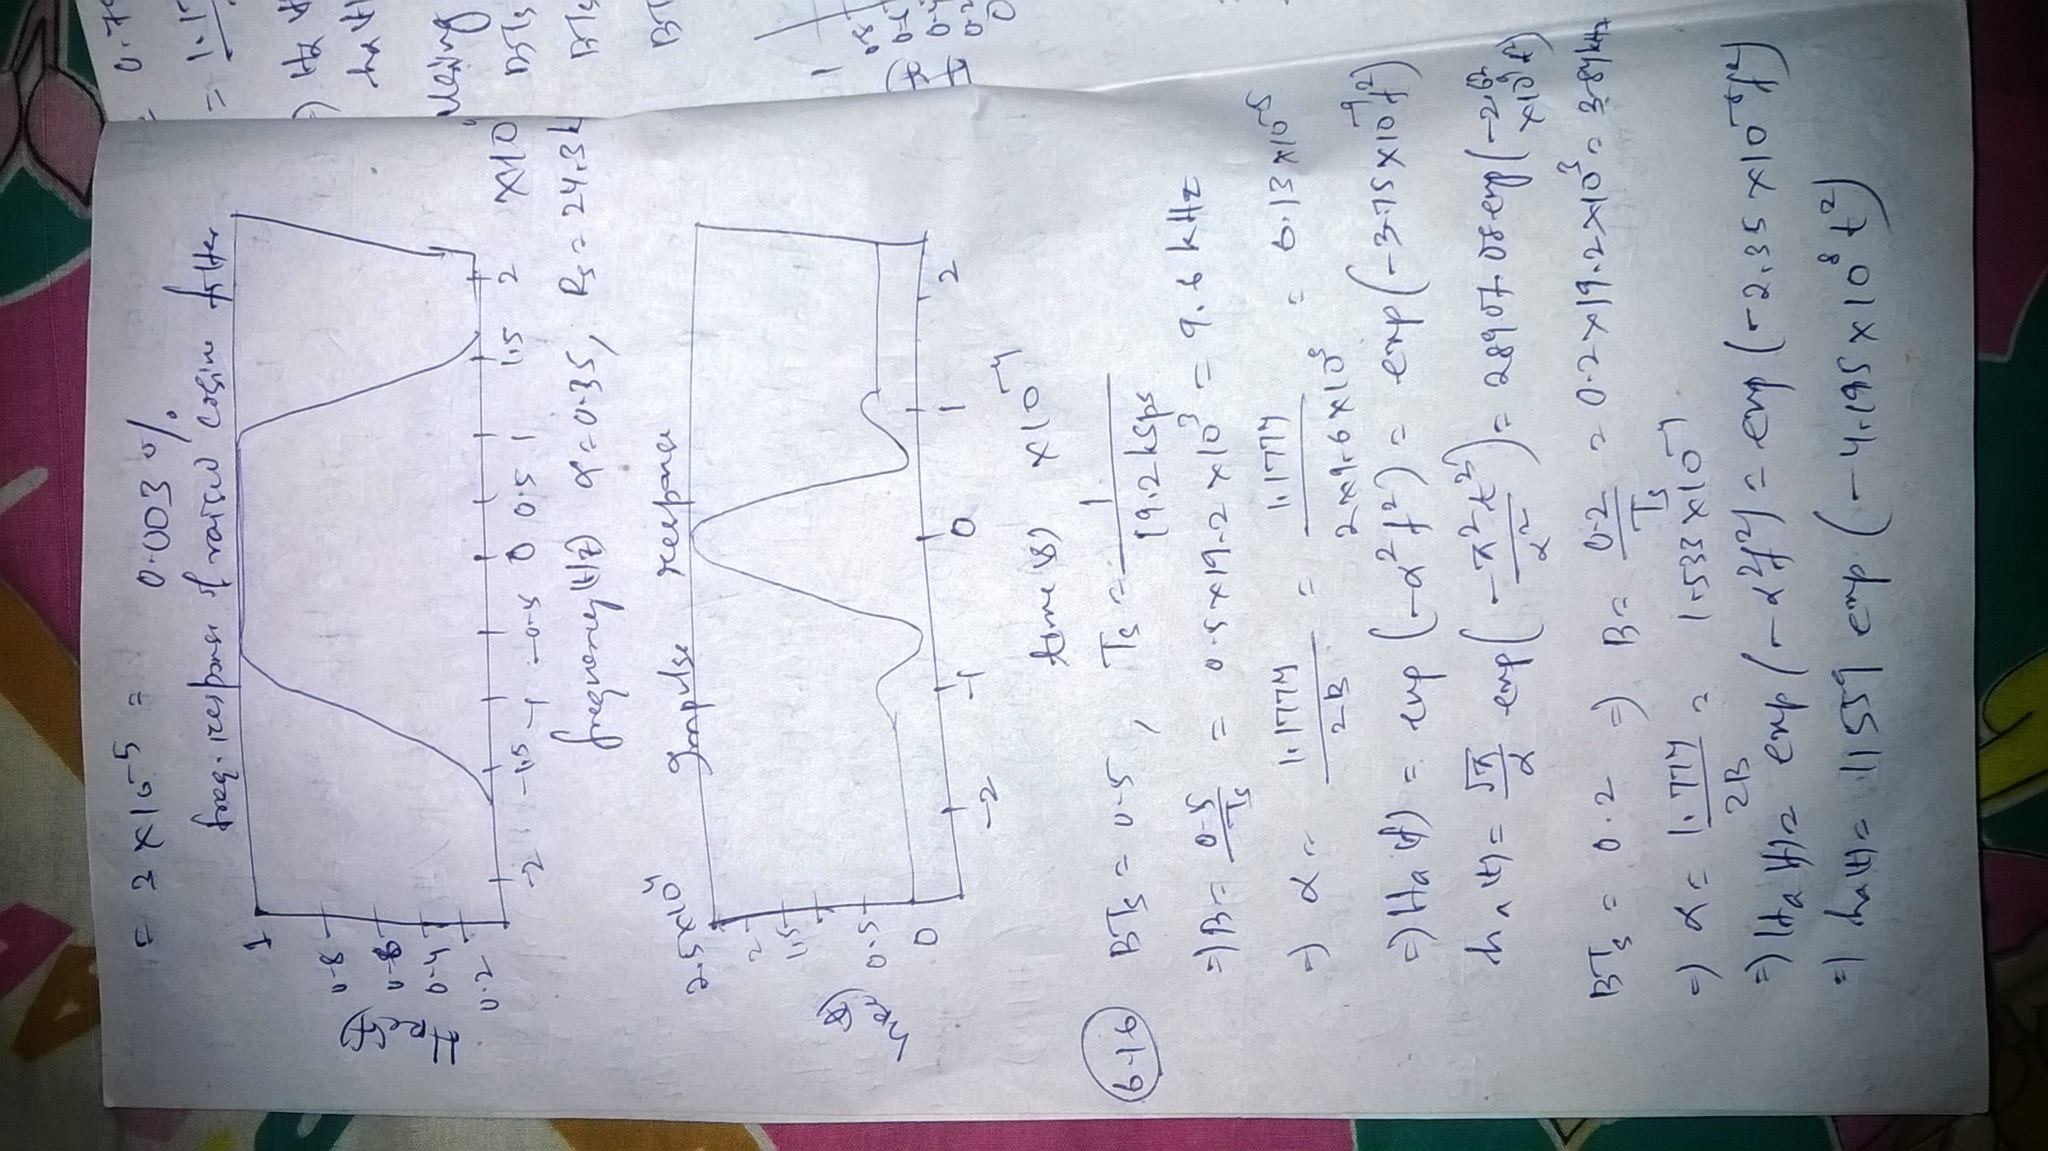 = 2 × 10⁻⁵ = 0.003 %.
freq. response of raised cosine filter
1
0.8
0.6
0.4
0.2
-2 -1.5 -1 -0.5 0 0.5 1 1.5 2 ×10
frequency (Hz) α = 0.35, Rs = 24.3k
Impulse response
2.5×10⁴
2
1.5
0.5
0
-2 -1 0 1 2
time (s) ×10⁻⁴
6.16 BTs = 0.5, Ts = 1/19.2 ksps
=) B = 0.5/Ts = 0.5×19.2×10³ = 9.6 kHz
=) α = 1.1774/2B = 1.1774/2×9.6×10³ = 6.13×10⁻⁵
=) Ha(f) = exp(-α²f²) = exp(-3.75×10⁻⁹f²)
ha(t) = √π/α exp(-π²t²/α²) = 28907.08 exp(-2.6 ×10⁹t)
BTs = 0.2 =) B = 0.2/Ts = 0.2×19.2×10³ = 3.84 kHz
=) α = 1.1774/2B = 1.533×10⁻⁴
=) Ha(f) = exp(-α²f²) = exp(-2.35×10⁻⁸f²)
=) ha(t) = 11559 exp(-4.195×10⁸t²)
0.7
= 1.17
) Ha (f
ha (t
using
BTs
BTs
BT
1
0.8
0.6
0.4
0.2
0